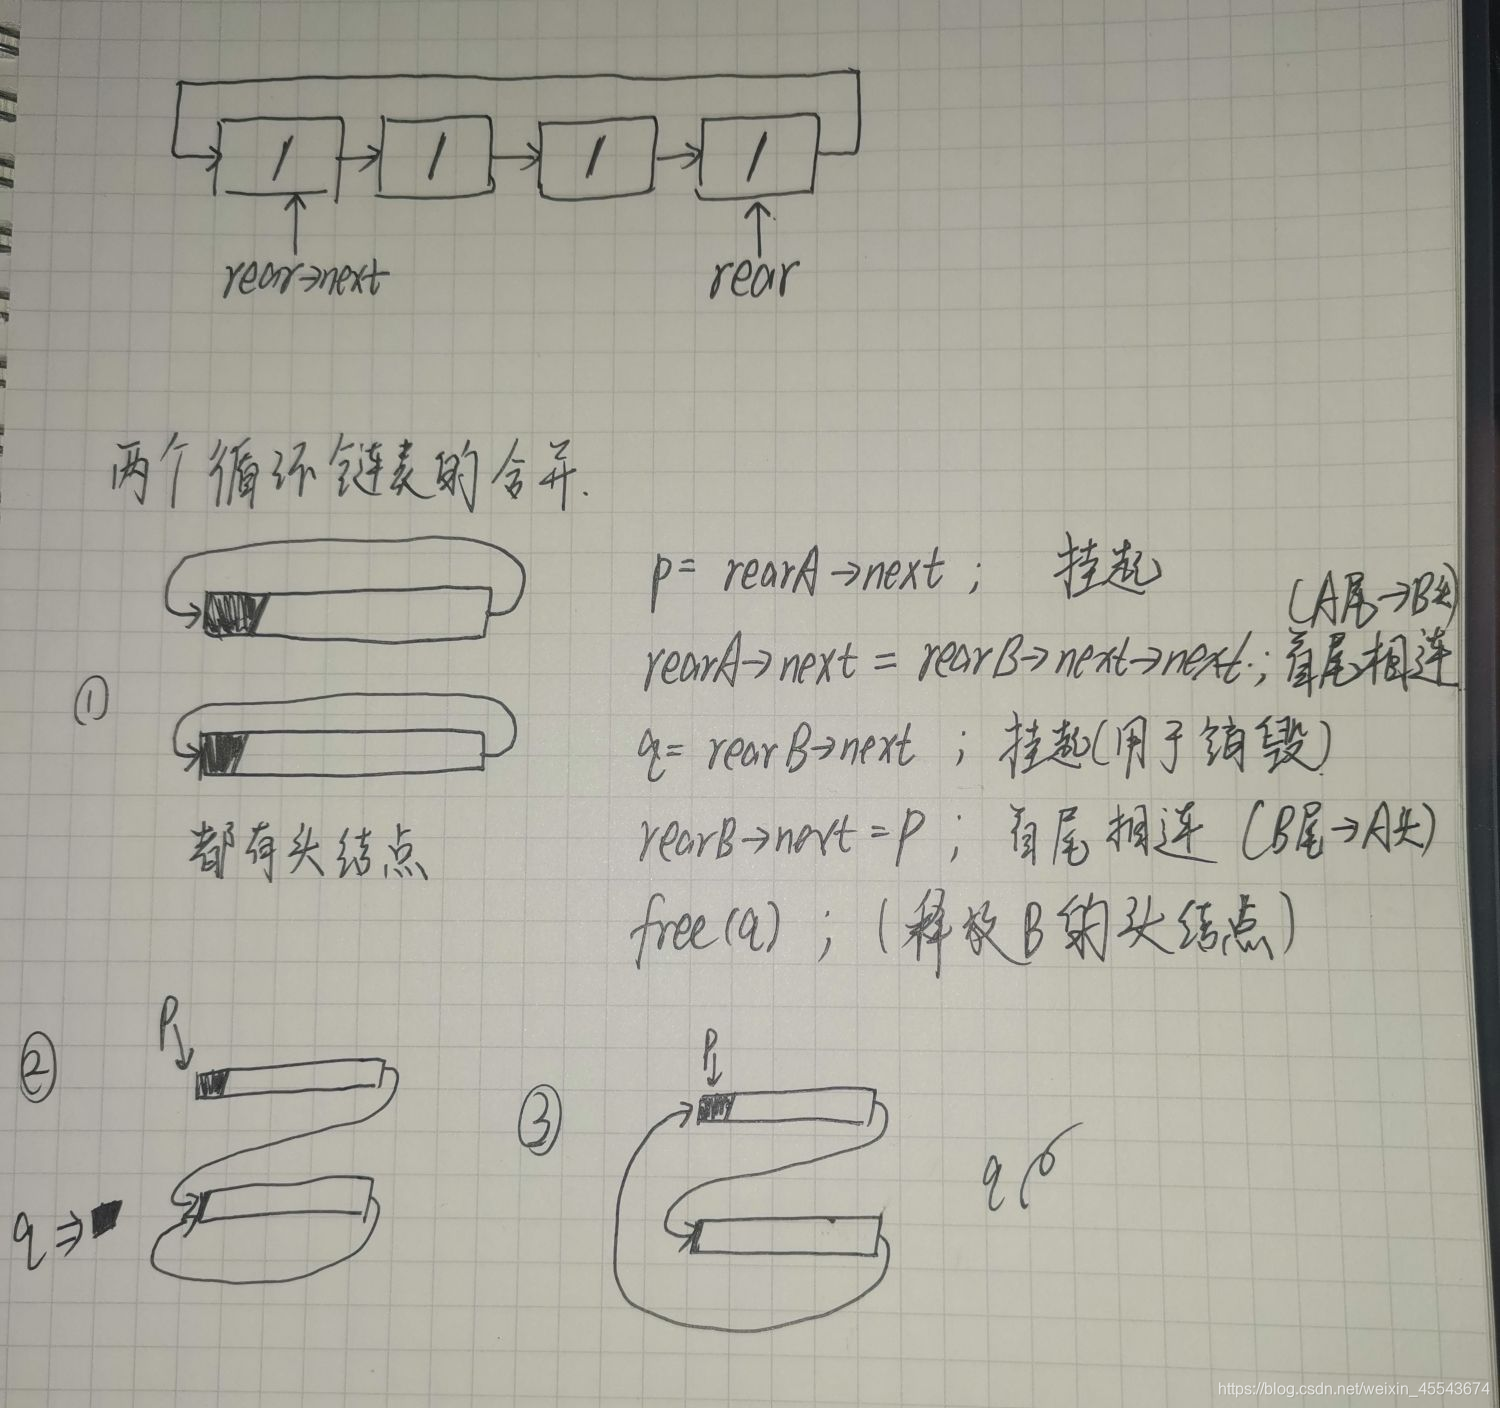 rear→next
rear
两个循环链表的合并.
p= rearA→next ; 挂起
(A尾→B头)
rearA→next = rearB→next→next ; 首尾相连
①
q= rearB→next ; 挂起(用于销毁)
rearB→next=P ; 首尾相连 (B尾→A头)
都有头结点
free(q) ; (释放B的头结点)
②
P
q⇒
③
P
q
https://blog.csdn.net/weixin_45543674